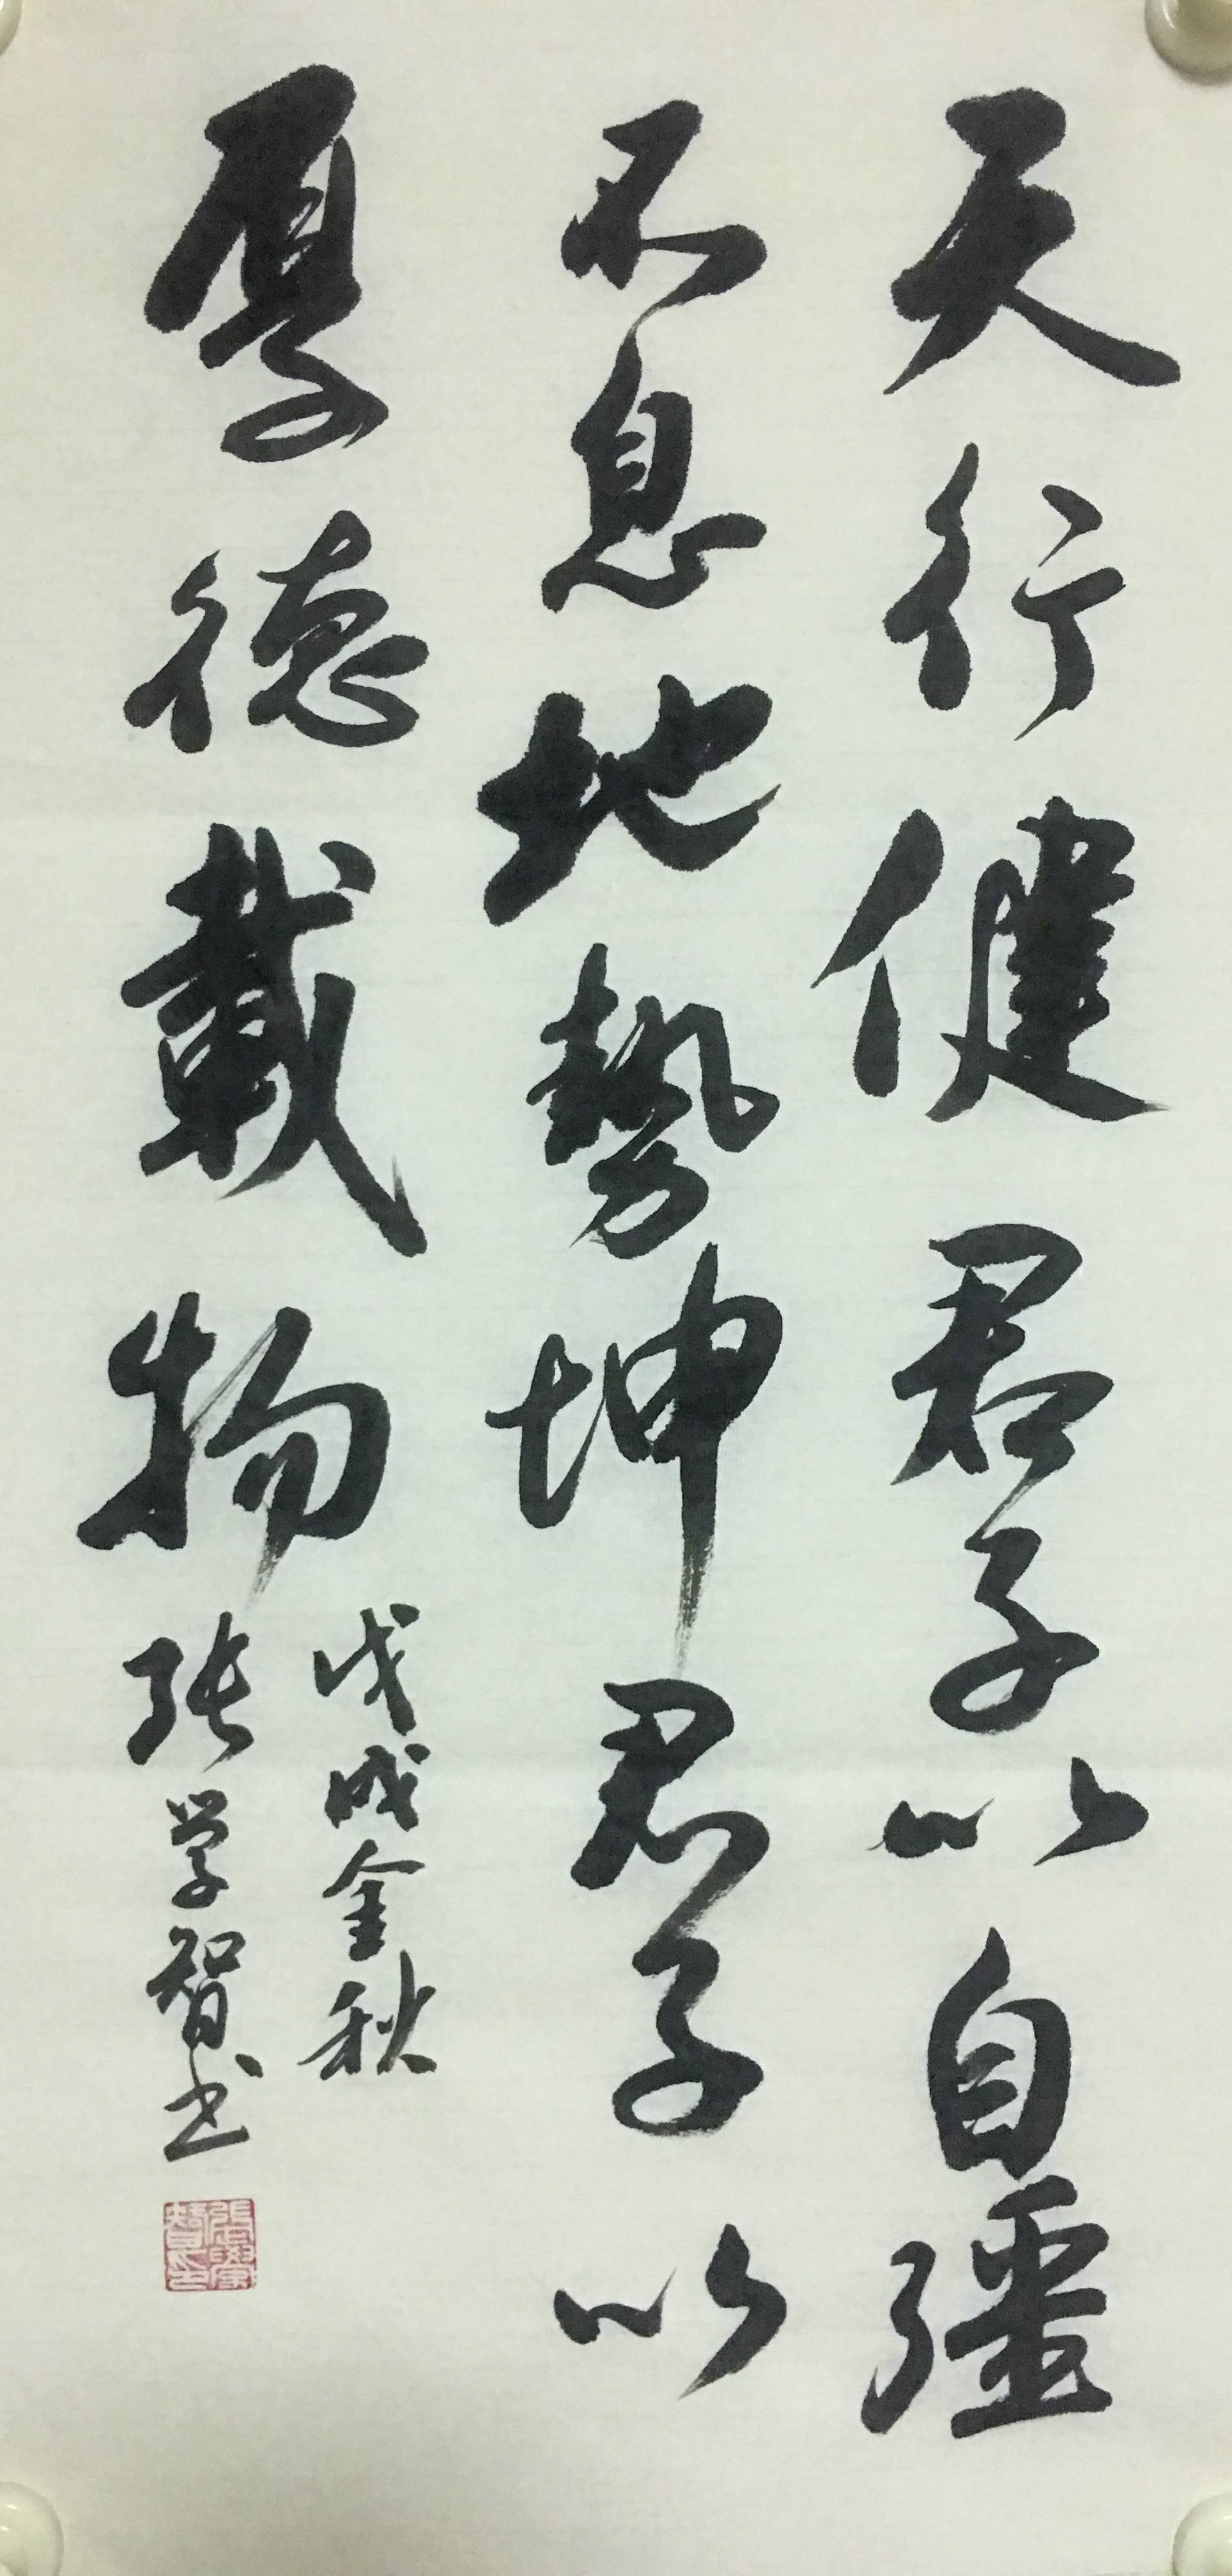 天行健君子以自彊
不息地勢坤君子以
厚德載物
戊戌金秋
张学智书
張學智印